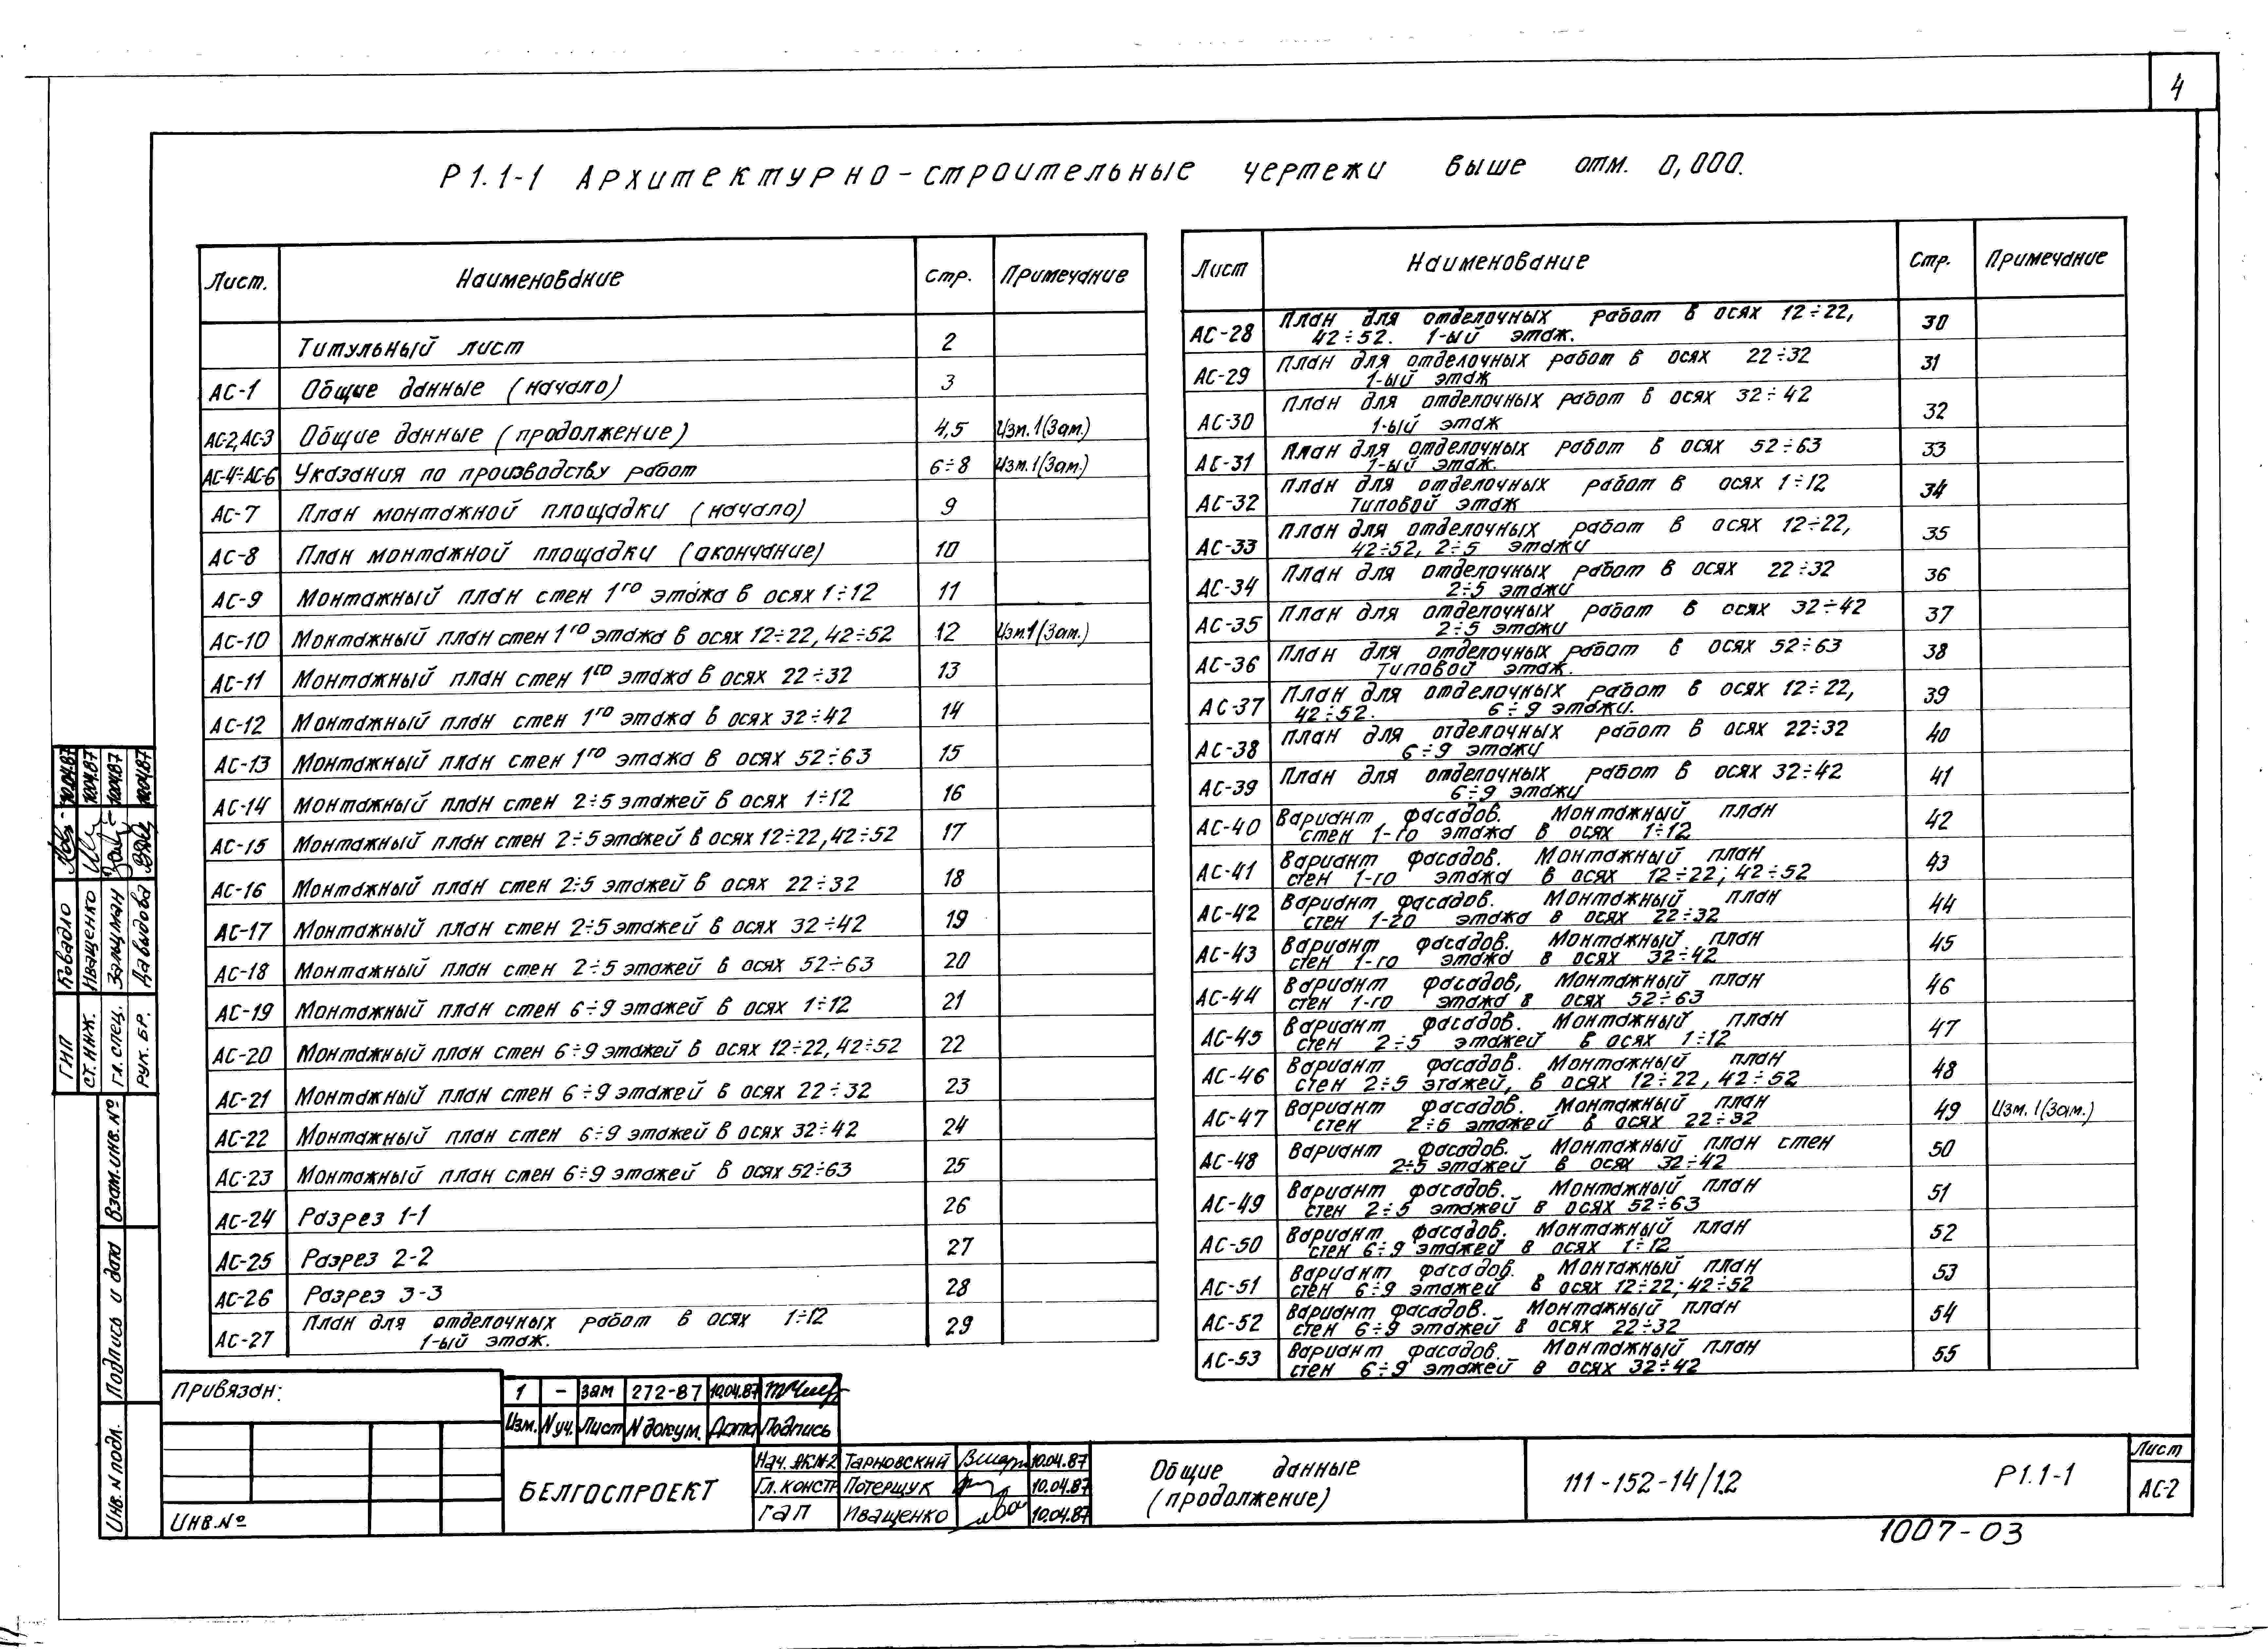 4
Р1.1-1 Архитектурно-строительные чертежи выше отм. 0,000.
Лист. Наименование Стр. Примечание
Титульный лист 2
АС-1 Общие данные (начало) 3
АС-2,АС-3 Общие данные (продолжение) 4,5 Изм.1(Зам.)
АС-4÷АС-6 Указания по производству работ 6÷8 Изм.1(Зам.)
АС-7 План монтажной площадки (начало) 9
АС-8 План монтажной площадки (окончание) 10
АС-9 Монтажный план стен 1го этажа в осях 1÷12 11
АС-10 Монтажный план стен 1го этажа в осях 12÷22, 42÷52 12 Изм.1(Зам.)
АС-11 Монтажный план стен 1го этажа в осях 22÷32 13
АС-12 Монтажный план стен 1го этажа в осях 32÷42 14
АС-13 Монтажный план стен 1го этажа в осях 52÷63 15
АС-14 Монтажный план стен 2÷5 этажей в осях 1÷12 16
АС-15 Монтажный план стен 2÷5 этажей в осях 12÷22, 42÷52 17
АС-16 Монтажный план стен 2÷5 этажей в осях 22÷32 18
АС-17 Монтажный план стен 2÷5 этажей в осях 32÷42 19
АС-18 Монтажный план стен 2÷5 этажей в осях 52÷63 20
АС-19 Монтажный план стен 6÷9 этажей в осях 1÷12 21
АС-20 Монтажный план стен 6÷9 этажей в осях 12÷22, 42÷52 22
АС-21 Монтажный план стен 6÷9 этажей в осях 22÷32 23
АС-22 Монтажный план стен 6÷9 этажей в осях 32÷42 24
АС-23 Монтажный план стен 6÷9 этажей в осях 52÷63 25
АС-24 Разрез 1-1 26
АС-25 Разрез 2-2 27
АС-26 Разрез 3-3 28
АС-27 План для отделочных работ в осях 1÷12 29
1-ый этаж.
Лист Наименование Стр. Примечание
АС-28 План для отделочных работ в осях 12÷22, 30
42÷52. 1-ый этаж.
АС-29 План для отделочных работ в осях 22÷32 31
1-ый этаж
АС-30 План для отделочных работ в осях 32÷42 32
1-ый этаж
АС-31 План для отделочных работ в осях 52÷63 33
1-ый этаж.
АС-32 План для отделочных работ в осях 1÷12 34
Типовой этаж
АС-33 План для отделочных работ в осях 12÷22, 35
42÷52, 2÷5 этажи
АС-34 План для отделочных работ в осях 22÷32 36
2÷5 этажи
АС-35 План для отделочных работ в осях 32÷42 37
2÷5 этажи
АС-36 План для отделочных работ в осях 52÷63 38
Типовой этаж.
АС-37 План для отделочных работ в осях 12÷22, 39
42÷52. 6÷9 этажи.
АС-38 План для отделочных работ в осях 22÷32 40
6÷9 этажи
АС-39 План для отделочных работ в осях 32÷42 41
6÷9 этажи
АС-40 Вариант фасадов. Монтажный план 42
стен 1-го этажа в осях 1÷12
АС-41 Вариант фасадов. Монтажный план 43
стен 1-го этажа в осях 12÷22; 42÷52
АС-42 Вариант фасадов. Монтажный план 44
стен 1-го этажа в осях 22÷32
АС-43 Вариант фасадов. Монтажный план 45
стен 1-го этажа в осях 32÷42
АС-44 Вариант фасадов, Монтажный план 46
стен 1-го этажа в осях 52÷63
АС-45 Вариант фасадов. Монтажный план 47
стен 2÷5 этажей в осях 1÷12
АС-46 Вариант фасадов. Монтажный план 48
стен 2÷5 этажей, в осях 12÷22, 42÷52
АС-47 Вариант фасадов. Монтажный план 49 Изм.1(Зам.)
стен 2÷6 этажей в осях 22÷32
АС-48 Вариант фасадов. Монтажный план стен 50
2÷5 этажей в осях 32÷42
АС-49 Вариант фасадов. Монтажный план 51
стен 2÷5 этажей в осях 52÷63
АС-50 Вариант фасадов. Монтажный план 52
стен 6÷9 этажей в осях 1÷12
АС-51 Вариант фасадов. Монтажный план 53
стен 6÷9 этажей в осях 12÷22; 42÷52
АС-52 Вариант фасадов. Монтажный план 54
стен 6÷9 этажей в осях 22÷32
АС-53 Вариант фасадов. Монтажный план 55
стен 6÷9 этажей в осях 32÷42
ГИП Ковадло 10.04.87
Ст. инж. Иващенко 10.04.87
Гл. спец. Зальцман 10.04.87
Рук. бр. Давыдова 10.04.87
Взам.инв.№
Подпись и дата
Инв.N подл.
Привязан:
Инв.№
1 - Зам 272-87 10.04.87
Изм. N уч. Лист N докум. Дата Подпись
БЕЛГОСПРОЕКТ
Нач. АКМ-2 Тарновский 10.04.87
Гл. констр Потерщук 10.04.87
ГАП Иващенко 10.04.87
Общие данные
(продолжение)
111-152-14/1.2
Р1.1-1
Лист
АС-2
1007-03